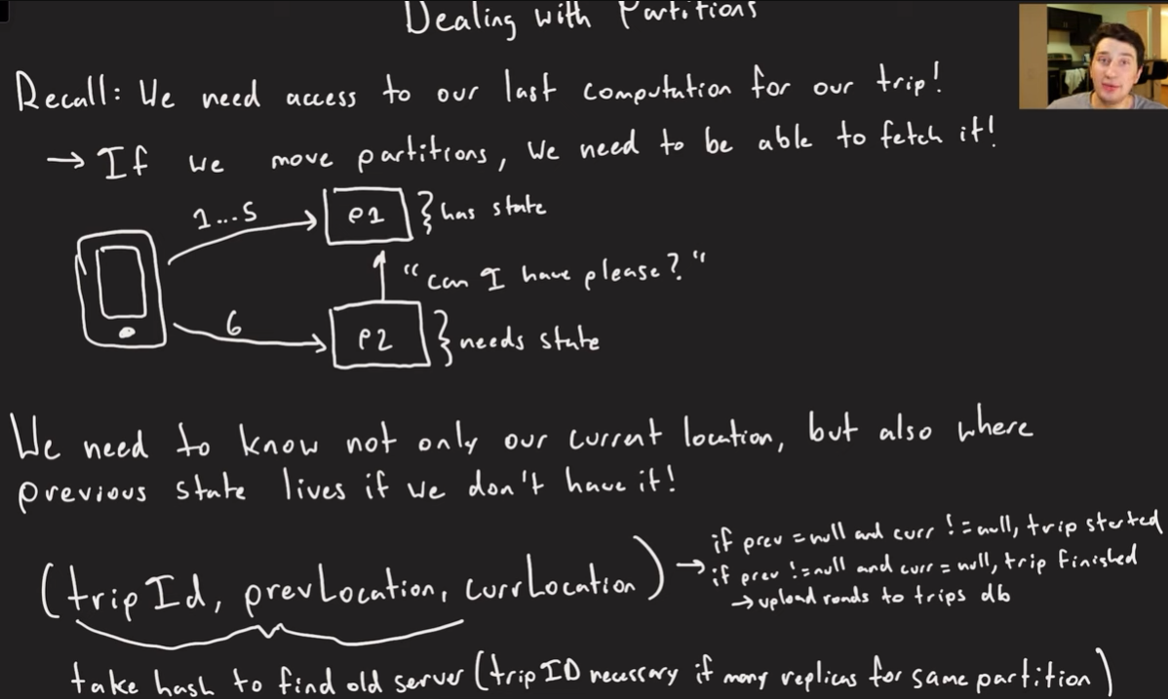 Dealing with Partitions
Recall: We need access to our last computation for our trip!
→ If we move partitions, we need to be able to fetch it!
1...5
P1
} has state
"can I have please?"
6
P2
} needs state
We need to know not only our current location, but also where
previous state lives if we don't have it!
(tripId, prevLocation, currLocation)
→ if prev = null and curr != null, trip started
if prev != null and curr = null, trip finished
→ upload roads to trips db
take hash to find old server (tripID necessary if many replicas for same partition)